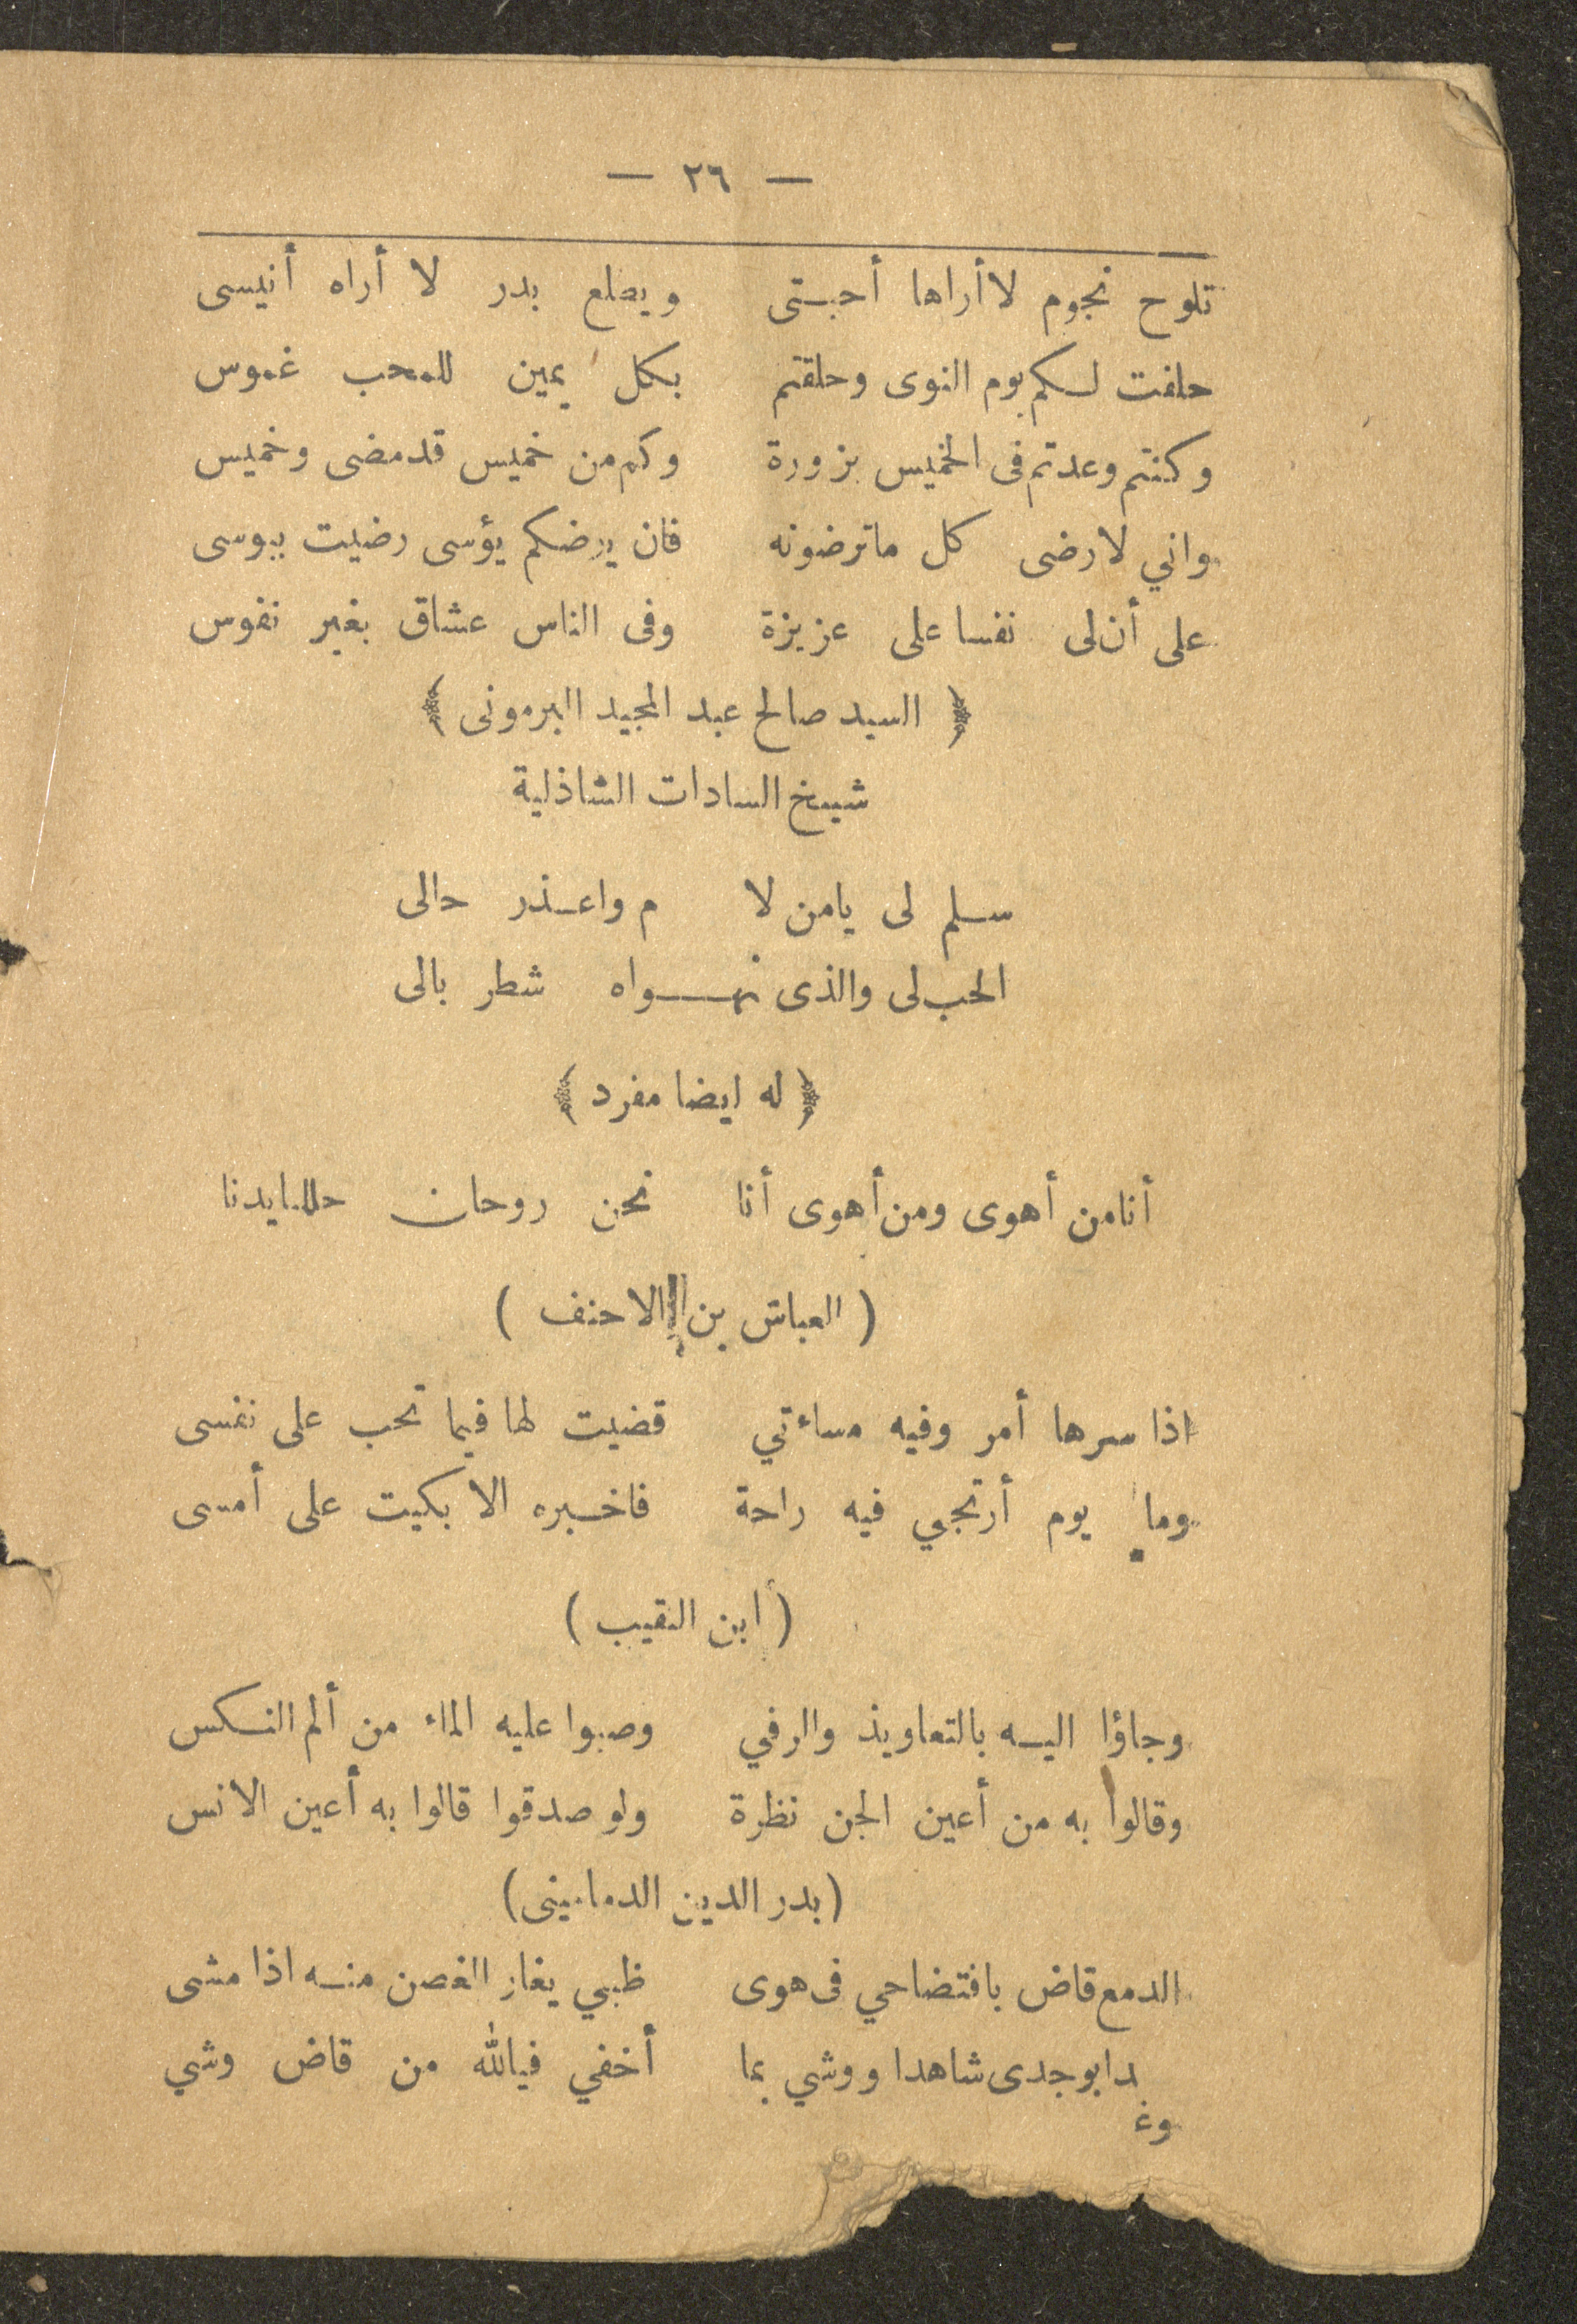 — ٢٦ —
تلوح نجوم لا أراها أحبتى ويطلع بدر لا أراه أنيسى
حلفت لكم يوم النوى وحلفتم بكل يمين للمحب غموس
وكنتم وعدتم فى الخميس بزورة وكم من خميس قد مضى وخميس
واني لارضى كل ماترضونه فان يرضكم يؤسى رضيت ببوسى
على أن لى نفسا على عزيزة وفى الناس عشاق بغير نفوس
﴿ السيد صالح عبد المجيد البرمونى ﴾
شيخ السادات الشاذلية
سلم لى يامن لا م واعذر حالى
الحب لى والذى نهواه شطر بالى
﴿ له ايضا مفرد ﴾
أنامن أهوى ومن أهوى أنا نحن روحان حللنا بدنا
( العباس بن الاحنف )
اذا سرها أمر وفيه مساءتي قضيت لها فيما تحب على نفسى
وما يوم أرتجي فيه راحة فاخبره الا بكيت على أمسى
( ابن النقيب )
وجاؤا اليه بالتعاويذ والرقي وصبوا عليه الماء من ألم النكس
وقالوا به من أعين الجن نظرة ولو صدقوا قالوا به أعين الانس
( بدر الدين الدمامينى )
الدمع قاض بافتضاحي فى هوى ظبي يغار الغصن منه اذا مشى
وغدا بوجدى شاهدا ووشي بما أخفي فيالله من قاض وشي